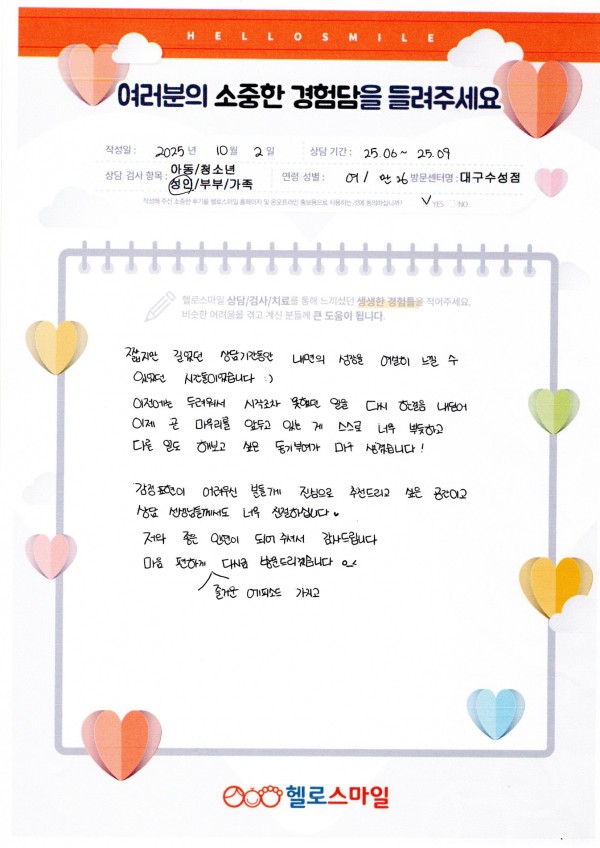 HELLOSMILE
여러분의 소중한 경험담을 들려주세요
작성일 : 2025 년 10 월 2 일 상담 기간 : 25.06 ~ 25.09
상담 검사 항목 : 아동/청소년 성인/부부/가족 연령 성별 : 여 / 만 26 방문센터명 : 대구수성점
작성해 주신 소중한 후기를 헬로스마일 홈페이지 및 온오프라인 홍보용으로 사용하는 것에 동의하십니까? ✓ YES □ NO
헬로스마일 상담/검사/치료를 통해 느끼셨던 생생한 경험들을 적어주세요.
비슷한 어려움을 겪고 계신 분들께 큰 도움이 됩니다.
짧지만 길었던 상담기간동안 내면의 성장을 여실히 느낄 수
있었던 시간들이었습니다 :)
이전에는 두려워서 시작조차 못했던 일을 다시 한걸음 내딛어
이제 곧 마무리를 앞두고 있는 게 스스로 너무 뿌듯하고
다른 일도 해보고 싶은 동기부여가 마구 생겼습니다!
감정표현이 어려우신 분들께 진심으로 추천드리고 싶은 공간이고
상담 선생님들께서도 너무 친절하십니다 ♥
저와 좋은 인연이 되어 주셔서 감사드립니다
마음 편하게 다시금 방문드리겠습니다
즐거운 에피소드 가지고
헬로스마일